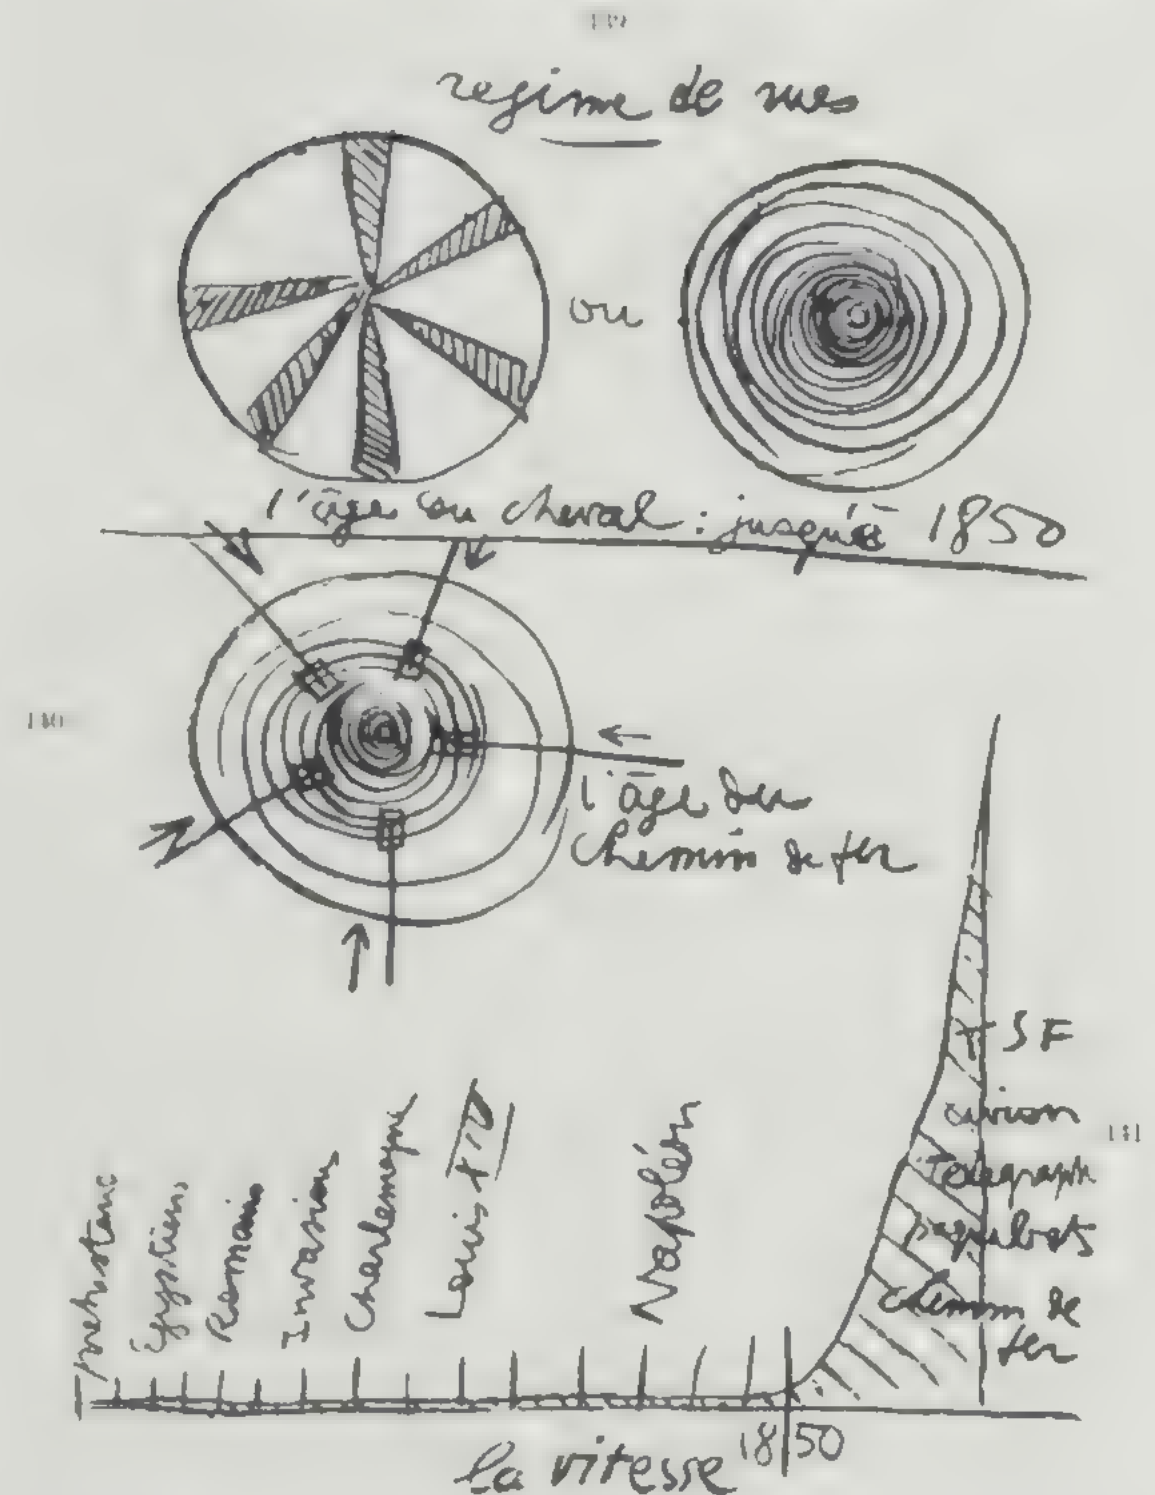 139
regime de rues
ou
l'âge du cheval : jusqu'à 1850
140
l'âge du
chemin de fer
TSF
avion
telegraph
paquebots
chemin de
fer
141
Égyptiens
Romains
Invasions
Charlemagne
Louis XIV
Napoléon
1850
la vitesse